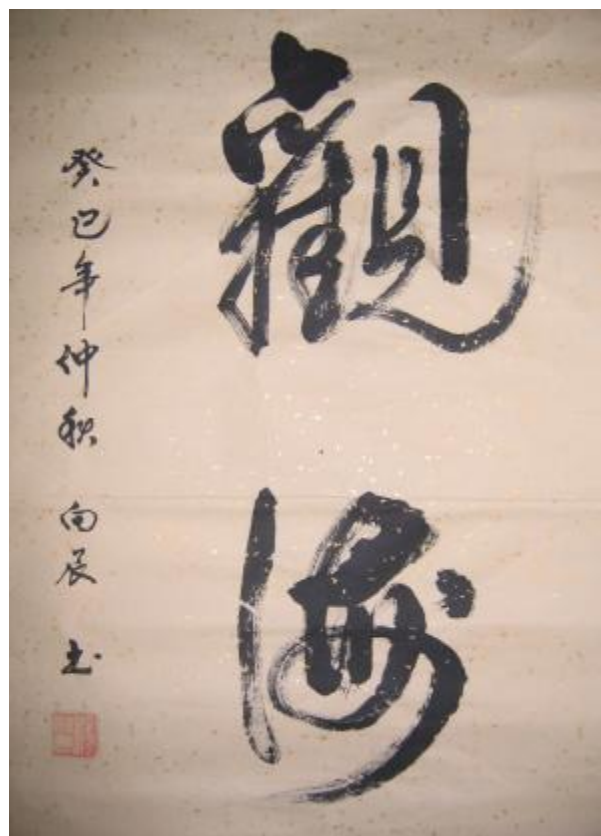 觀海
癸巳年仲秋 向辰 书